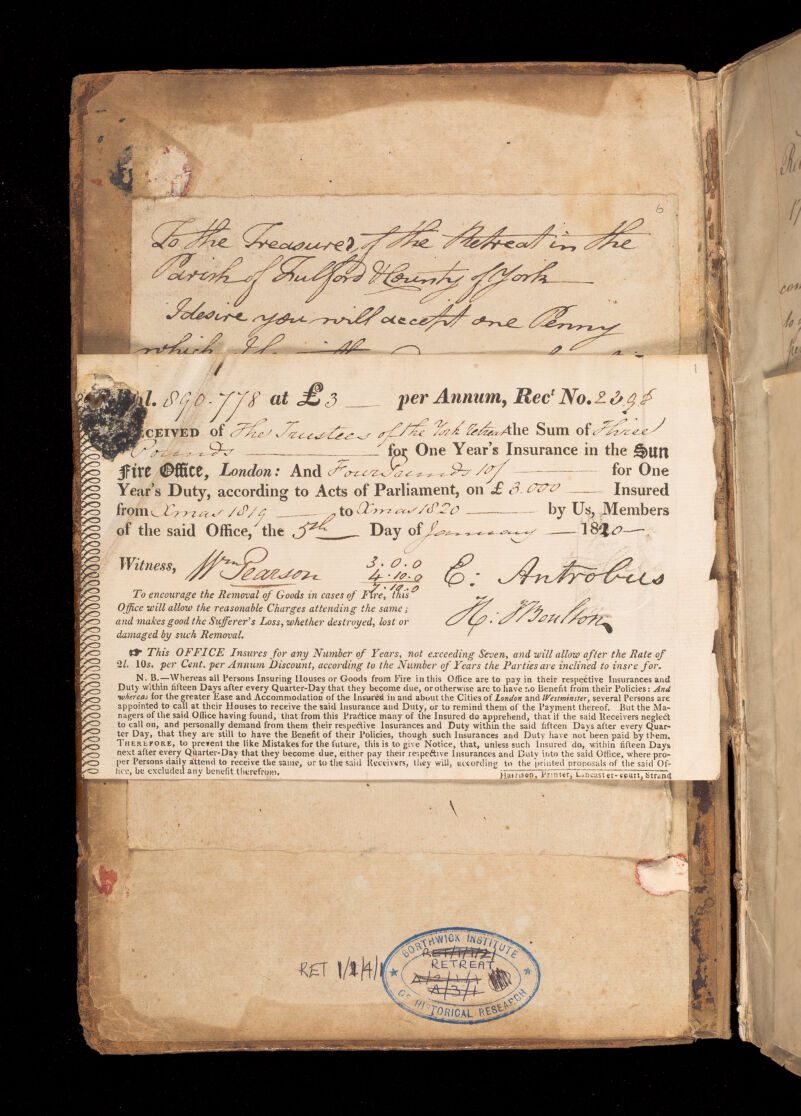 6
To the Treasurer of the Retreat in the
Parish of Fulford & County of York
I desire you will accept one Penny
which
1
Pol. 890.778 at £3 per Annum, Recᵗ No. 2398
RECEIVED of The Trustees of the York Retreat the Sum of Three
Pounds for One Year's Insurance in the Sun
Fire Office, London: And Four Pounds 10/ for One
Year's Duty, according to Acts of Parliament, on £ 3.000 Insured
from Xmas 1819 to Xmas 1820 by Us, Members
of the said Office, the 5th Day of January 1820
Witness, Wm Pearson
3.0.0
4.10.0
7.10.0
E: Antrobus
H: Boulton
To encourage the Removal of Goods in cases of Fire, this
Office will allow the reasonable Charges attending the same;
and makes good the Sufferer's Loss, whether destroyed, lost or
damaged by such Removal.
☞ This OFFICE Insures for any Number of Years, not exceeding Seven, and will allow after the Rate of
2l. 10s. per Cent. per Annum Discount, according to the Number of Years the Parties are inclined to insre for.
N. B.—Whereas all Persons Insuring Houses or Goods from Fire in this Office are to pay in their respective Insurances and
Duty within fifteen Days after every Quarter-Day that they become due, or otherwise are to have no Benefit from their Policies: And
whereas for the greater Ease and Accommodation of the Insured in and about the Cities of London and Westminster, several Persons are
appointed to call at their Houses to receive the said Insurance and Duty, or to remind them of the Payment thereof. But the Ma-
nagers of the said Office having found, that from this Practice many of the Insured do apprehend, that if the said Receivers neglect
to call on, and personally demand from them their respective Insurances and Duty within the said fifteen Days after every Quar-
ter Day, that they are still to have the Benefit of their Policies, though such Insurances and Duty have not been paid by them.
THEREFORE, to prevent the like Mistakes for the future, this is to give Notice, that, unless such Insured do, within fifteen Days
next after every Quarter-Day that they become due, either pay their respective Insurances and Duty into the said Office, where pro-
per Persons daily attend to receive the same, or to the said Receivers, they will, according to the printed proposals of the said Of-
fice, be excluded any benefit therefrom.
Harrison, Printer, Lancaster-court, Strand
RET 1/1/4/1
BORTHWICK INSTITUTE
RET/1/1/2/
RETREAT
A/2/1/1
A/3/1
OF HISTORICAL RESEARCH